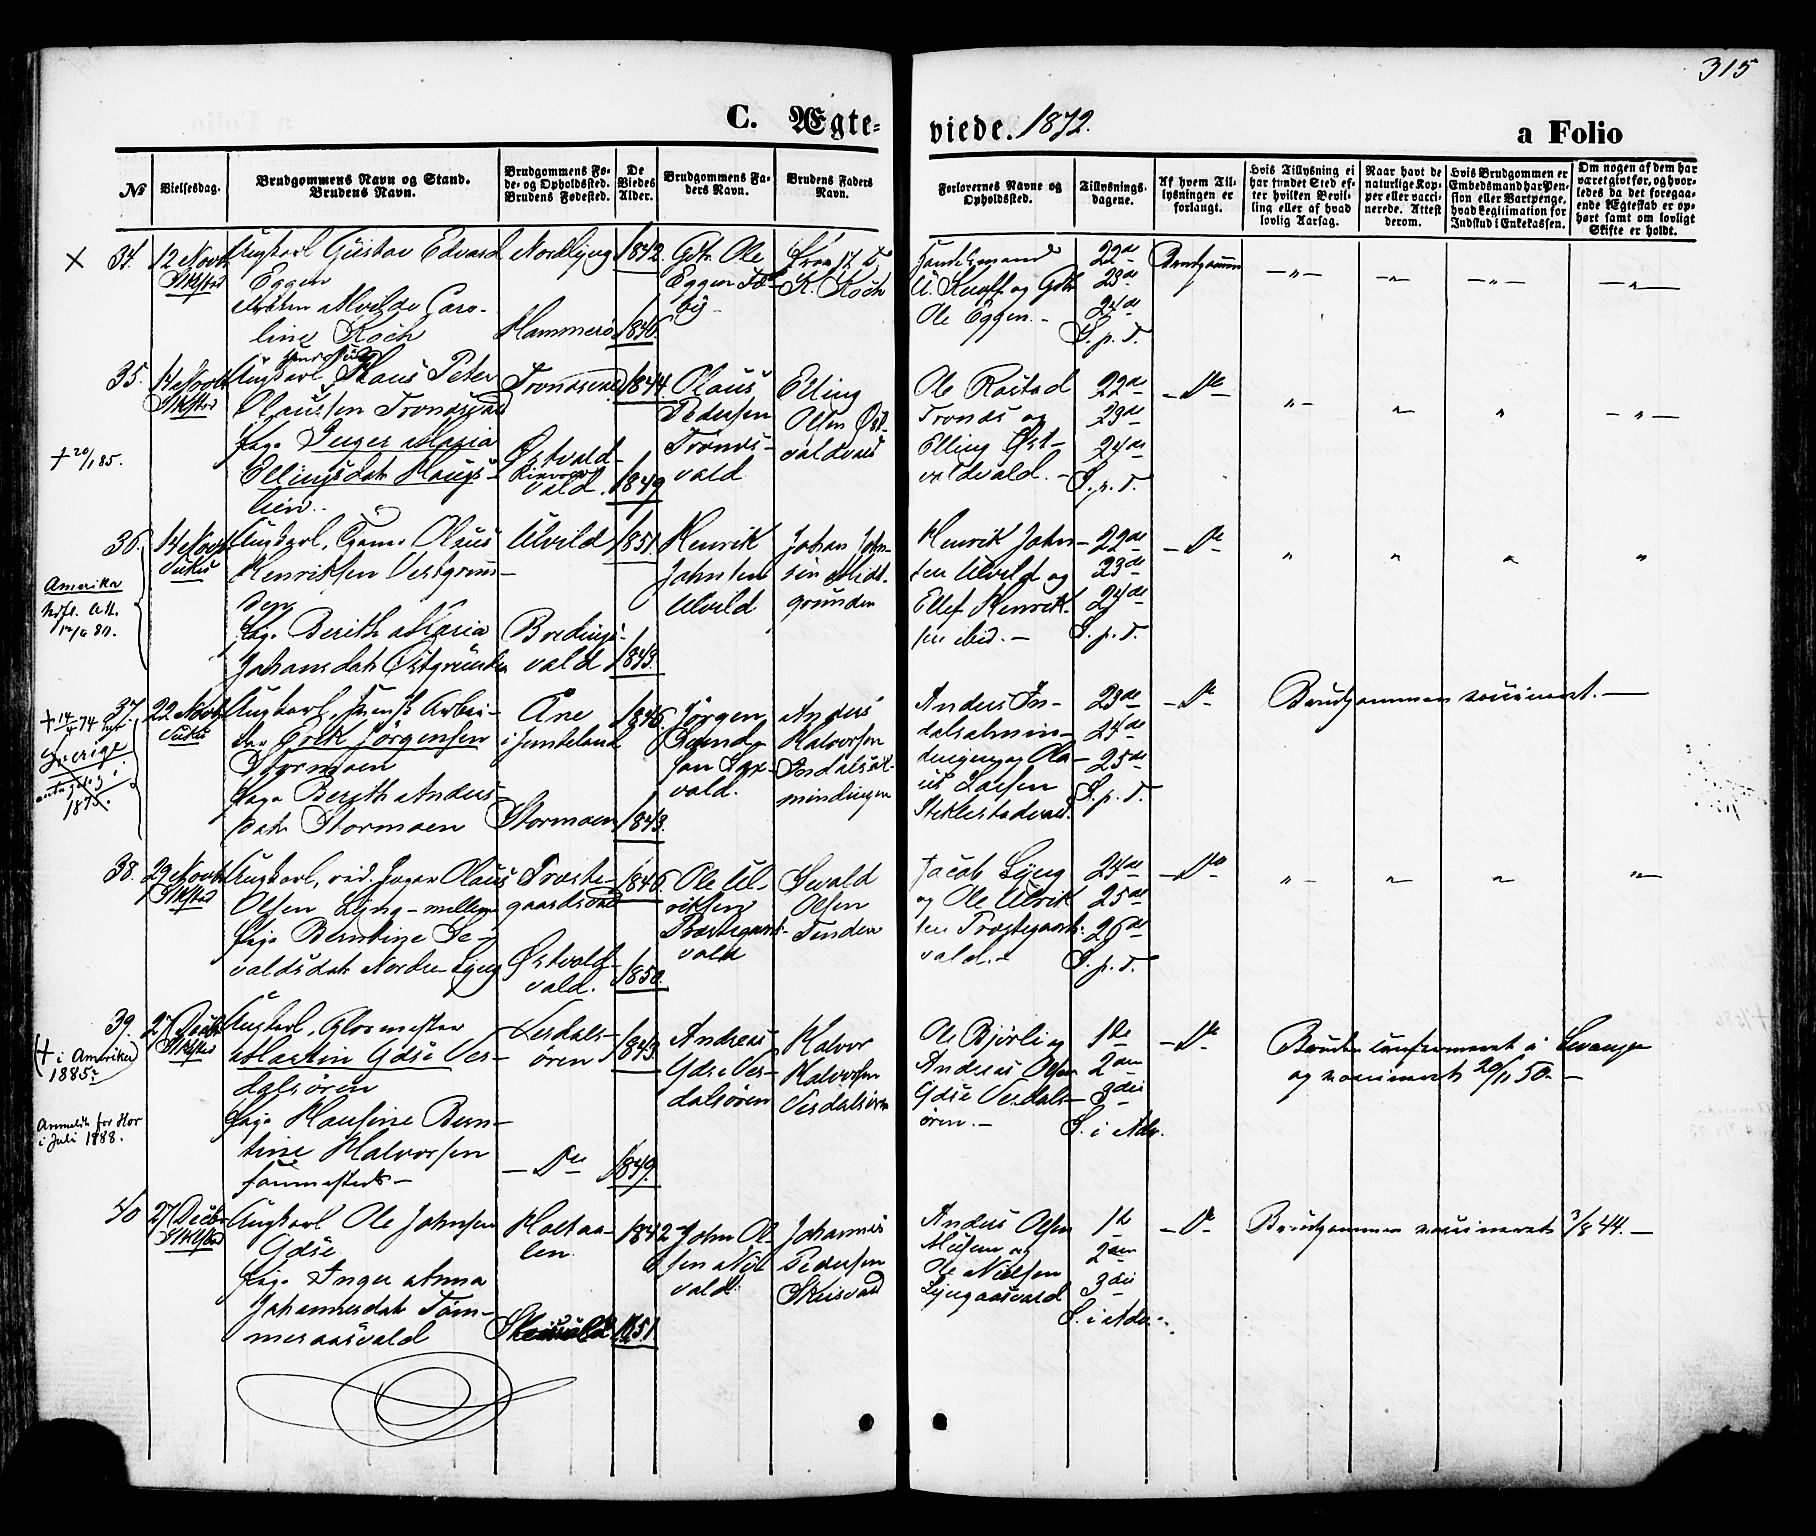 315
C. Ægte-
viede. 1872.
a Folio
No
Vielsesdag.
Brudgommens Navn og Stand.
Brudens Navn.
Brudgommens Fø-
de- og Opholdssted.
Brudens Fødested.
De
Viedes
Alder.
Brudgommens Fa-
ders Navn.
Brudens Faders
Navn.
Forlovernes Navne og
Opholdssted.
Tillysnings-
dagene.
Af hvem Til-
lysningen er
forlangt.
Hvis Tillysning ei
har fundet Sted ef-
ter hvilken Bevil-
ling eller af hvad
lovlig Aarsag.
Naar havt de
naturlige Kop-
per eller vacci-
nerede. Attest
derom.
Hvis Brudgommen er
Embedsmand har Pen-
sion eller Vartpenge,
hvad Legitimation for
Indskud i Enkekassen.
Om nogen af dem har
været givt før, og hvor-
ledes da det foregaa-
ende Ægteskab er op-
hørt samt om lovligt
Skifte er holdt.
34.
12 Novbr
Stkstad
Ungkarl Gustav Edvard
Eggen
Alvilde Caro-
line Koch
Nordlyng
Hammerø
1842
1846
Gdbr. Ole
Eggen
K. Koch
Handelsmand
og Gdbr
Ole Eggen. -
22de
23de
24de
S. p. T.
Brudgommen
35.
14 Novbr
Stkstad
Ungkarl Hans Peter
Olaussen Trondsvald
Pige Inger Maria
Ellingsdatr Haugs-
lien.
Trondsvald
Østvald-
vald.
1844
1849
Olaus
Pedersen
Tronds-
vald
Elling
Olsen Øst-
valdvald
Ole Rostad
Tronds og
Elling Øst-
valdvald. -
22de
23de
24de
S. p. T.
- Do -
+ 20/1 85.
36.
14 Novbr
Vuku
Ungkarl, Olaus
Henriksen Vestgrun-
den
Pige Berith Maria
Johansdatr Østgrunden
Ulvild
Bredings-
vald
1851
1843.
Henrik
Johnsen
Ulvild
Johan John-
sen Midt-
grunden
Henrik John-
sen Ulvild og
Ellef Henrik-
sen ibid. -
22de
23de
24de
S. p. T.
- Do -
Amerika
Udfl. Att.
37.
22 Novbr
Vuku
Ungkarl, svensk Arbei-
der Erik Jørgensen
Stormoen
Pige Berith Anders-
datr Stormoen
Åne
i Jemteland
Stormoen
1846
1843.
Jørgen
vald.
Anders
Halvorsen
Indalsal-
mindingen
Anders In-
dalsalmin-
dingen og Ola-
us Larsen
Stiklestadvald.
23de
24de
25de
S. p. T.
- Do -
Brudgommen vaccineret. -
Sverige
1875.
38.
29 Novbr
Stkstad
Ungkarl, Olaus
Olsen Lyng-mellem
Pige Berntine Se-
valdsdatr Nordre-Lyng
Præste-
gaardsvald
Østvald-
vald.
1846
1850.
Ole Ul-
riksen
Præstegaards-
vald
Sevald
Olsen
Tinden
Jacob Lyng
og Ole Ulrik-
sen Præstegaards-
vald. -
24de
25de
26de
S. p. T.
- Do -
39.
27 Decbr
Stkstad
Ungkarl, Glarmester
Martin Ydse Ver-
dalsøren
Pige Hansine Bern-
tine Halvorsen
Verdals-
øren
- Do -
1843
1849.
Andreas
Ydse Ver-
dalsøren
Halvor
Halvorsen
Verdalsøren
Ole Bjørli og
Andreas Olsen
Ydse Verdals-
øren. -
1ste
2den
3die
S. i Adv.
- Do -
Bruden confirmeret i Levanger
og vaccineret 20/11 50. -
(+ i Amerika)
1885?
Anmeldt for Mor
i Juli 1888.
40
27 Decbr
Stkstad
Ungkarl Ole Johnsen
Ydse
Pige Inger Anna
Johannesdatr Tøm-
meraasvald
Holtaa-
len
1842
1851
John Ol-
sen
vald
Johannes
Pedersen
Skeisvald
Anders Olsen
og
Ole Nielsen
Lyngaasvald
1ste
2den
3die
S. i Adv. -
- Do -
Brudgommen vaccineret 3/8 44. -